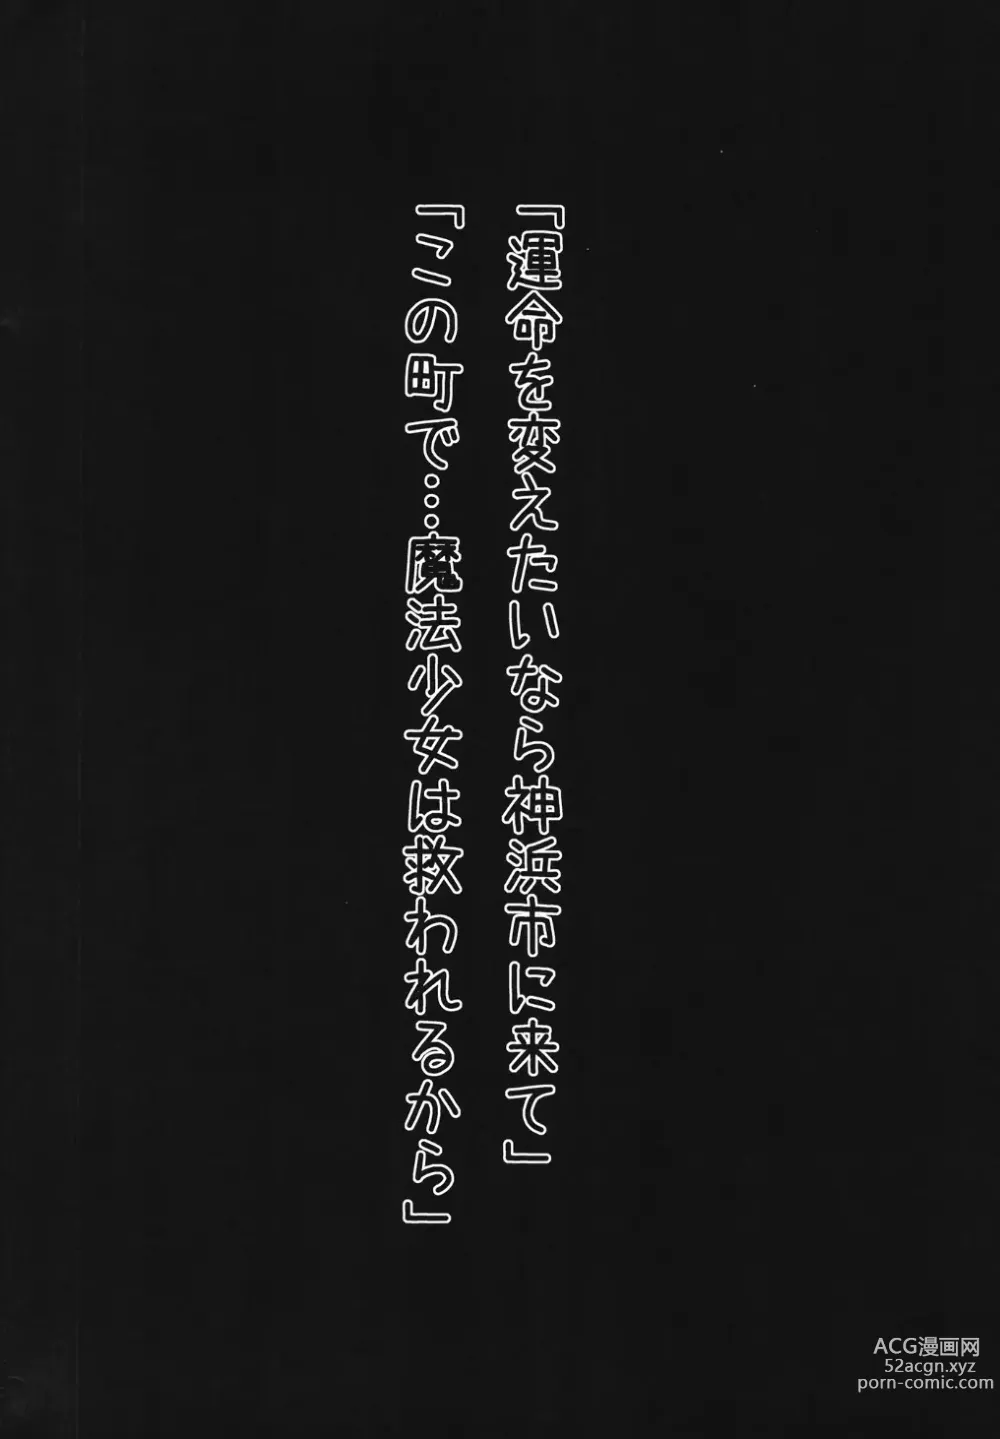 「運命を変えたいなら神浜市に来て」
「この町で…魔法少女は救われるから」
ACG漫画网
52acgn.xyz
porn-comic.com